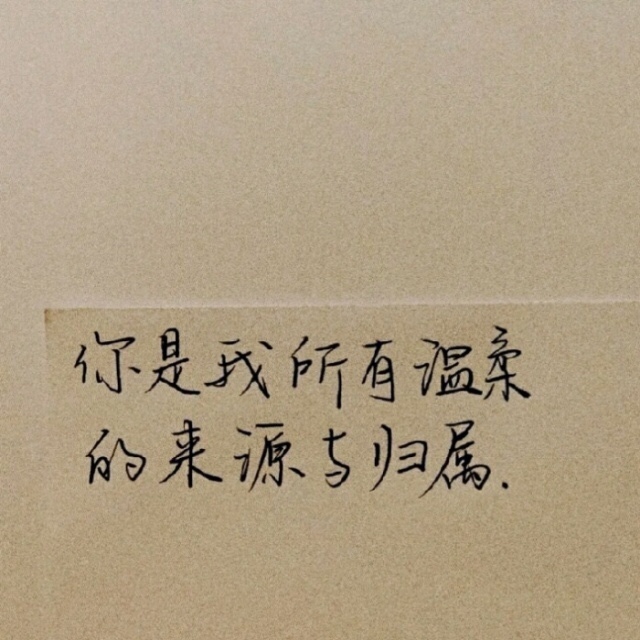 你是我所有温柔
的来源与归属.